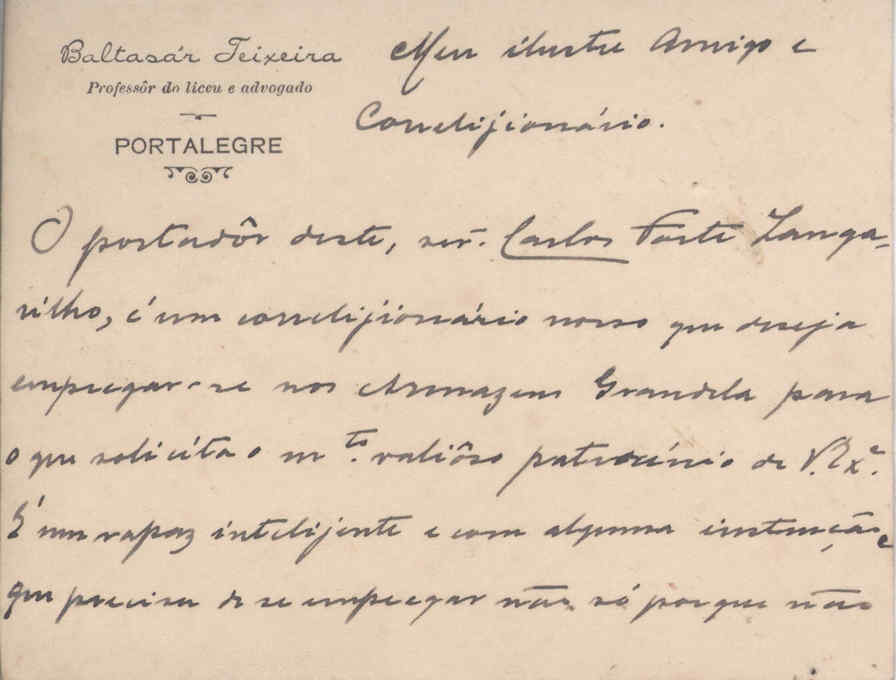 Baltasár Teixeira
Professôr do liceu e advogado
PORTALEGRE
Meu ilustre Amigo e
Correlijionário.
O portadôr deste, snr. Carlos Forte Zanga-
rilho, é um correlijionário nosso que deseja
empregar-se nos Armazens Grandela para
o que solicíta o mto. valiôso patrocínio de V. Exª.
É um rapaz intelijente e com alguma instrução e
que precisa de se empregar não só porque não